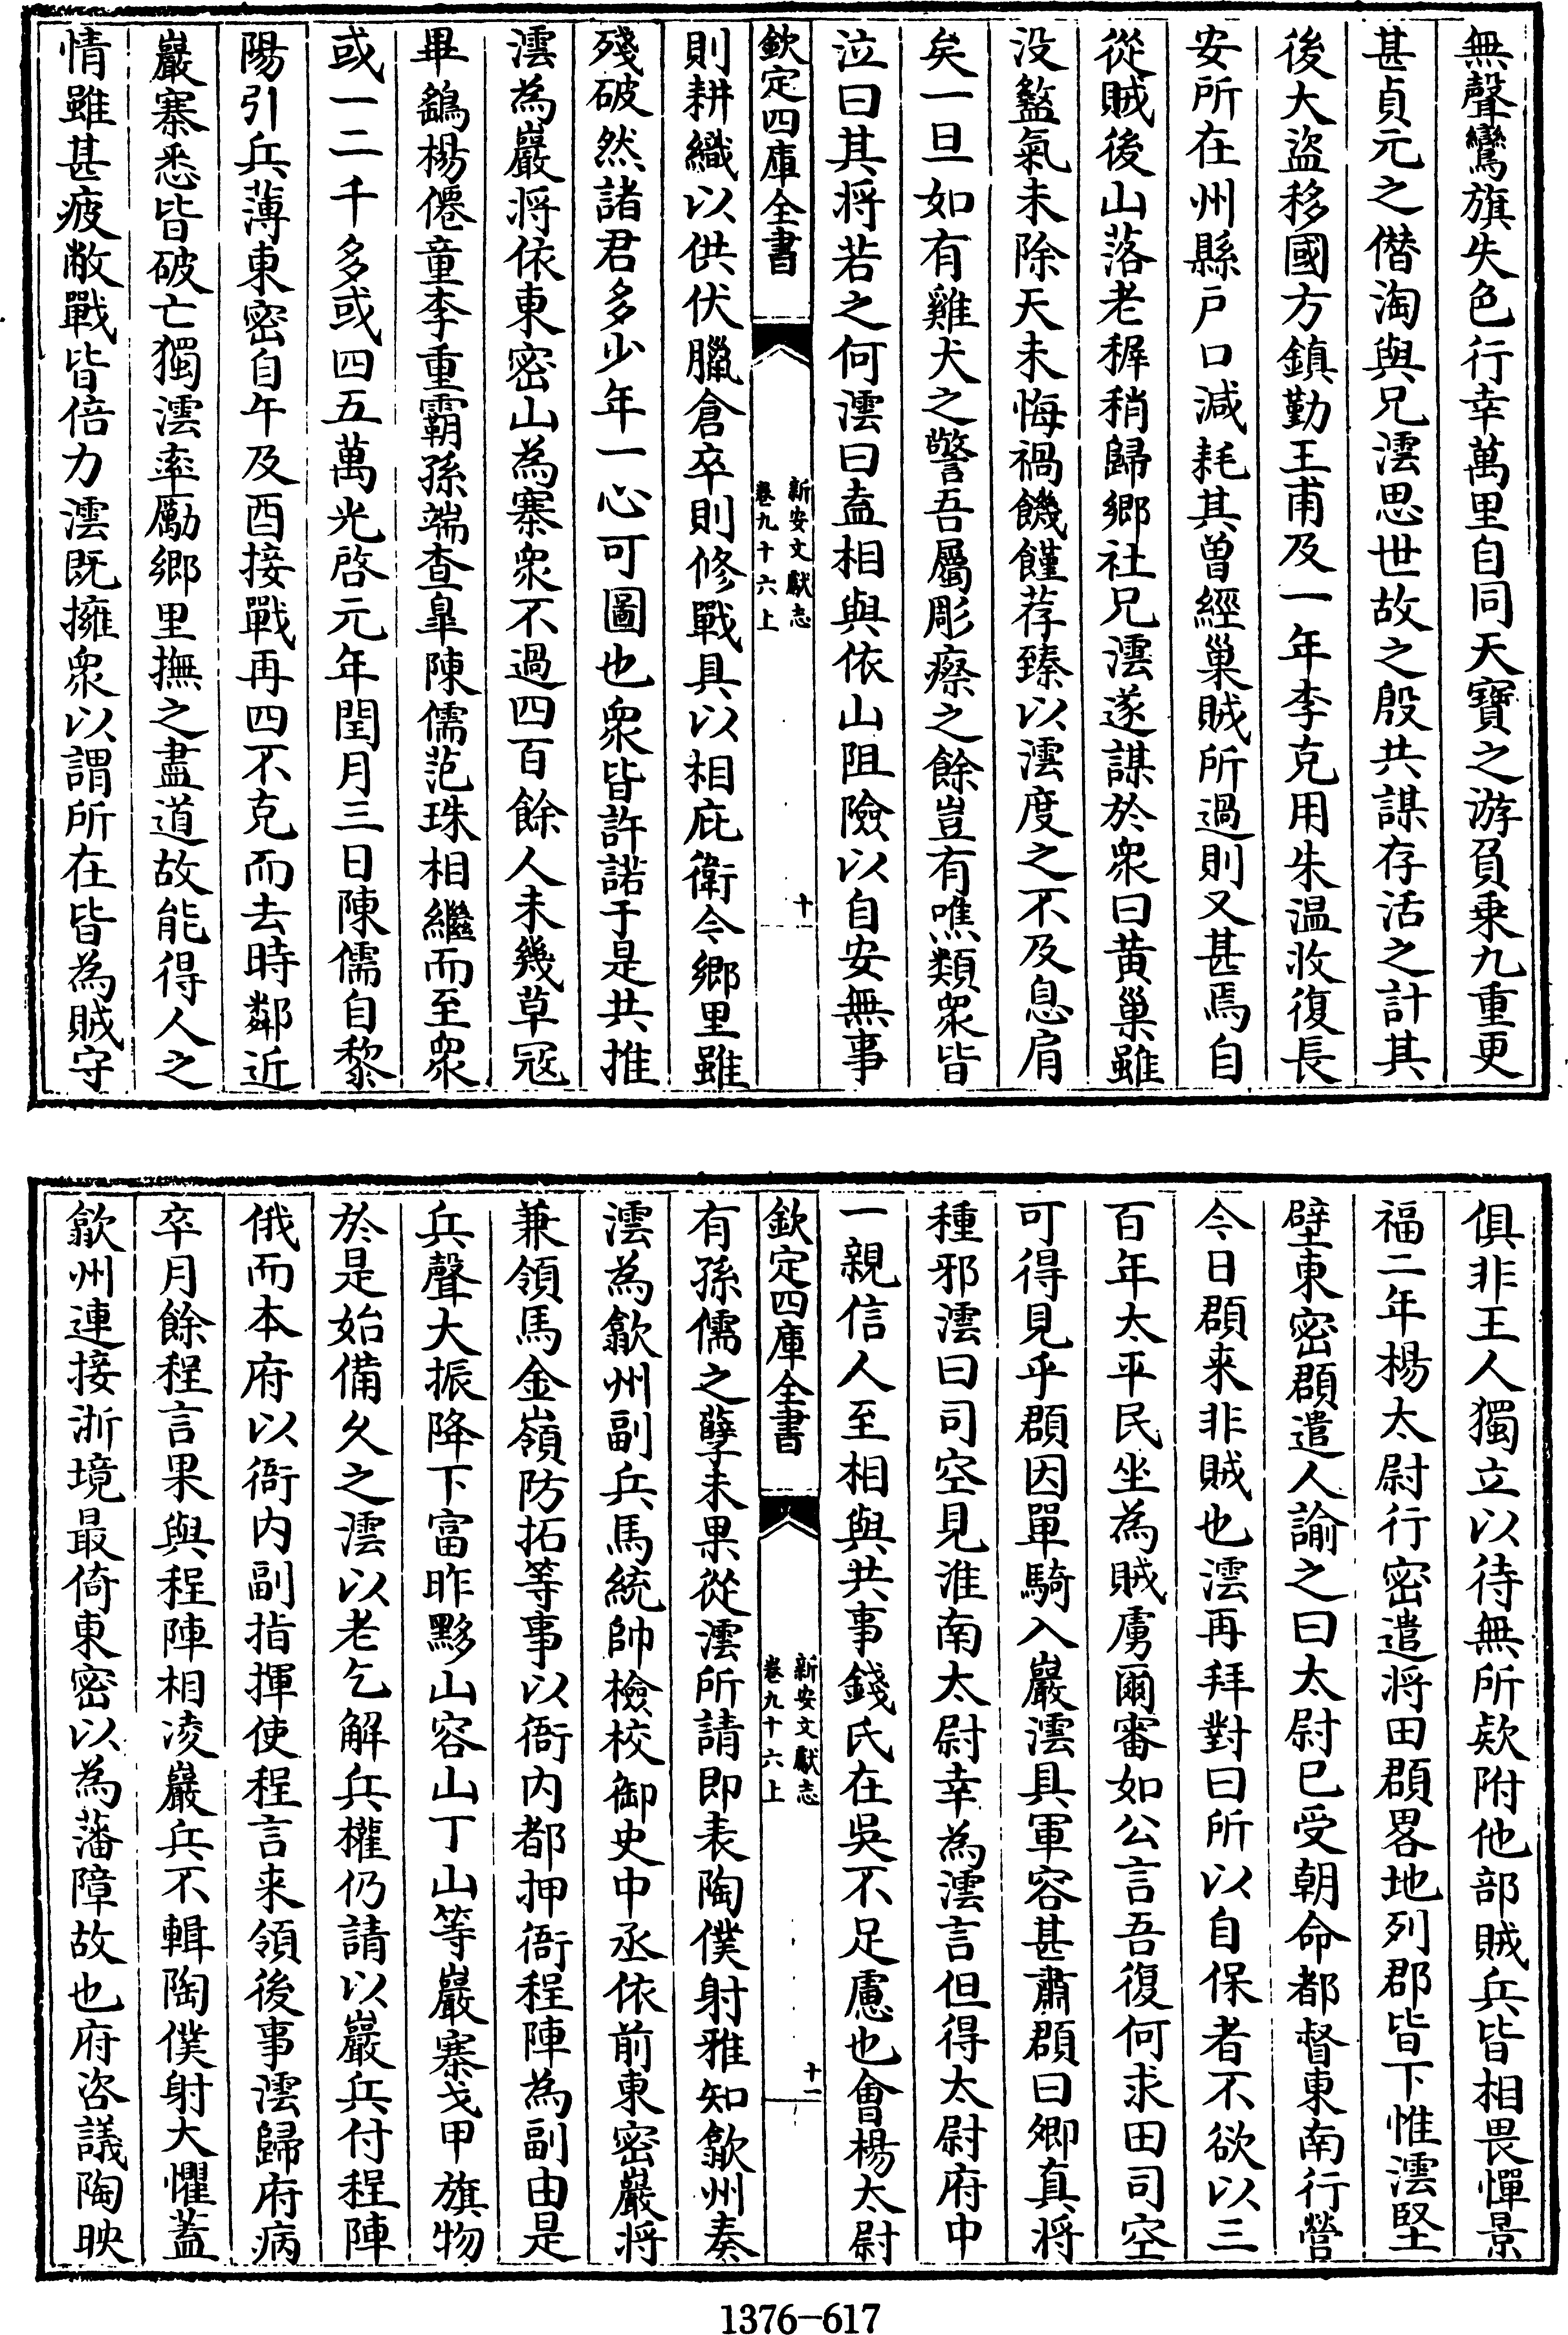 無聲鸞旗失色行幸萬里自同天寳之游負乗九重更
甚貞元之僭淘與兄澐思世故之殷共謀存活之計其
後大盜移國方鎮勤王甫及一年李克用朱温收復長
安所在州縣户口減耗其曽經巢賊所過則又甚焉自
從賊後山落老穉稍歸鄉社兄澐遂謀於衆曰黄巢雖
没盭氣未除天未悔禍饑饉荐臻以澐度之不及息肩
矣一旦如有雞犬之警吾屬彫瘵之餘豈有噍類衆皆
泣曰其将若之何澐曰盍相與依山阻險以自安無事
欽定四庫全書
新安文獻志
卷九十六上
十
則耕織以供伏臘倉卒則修戰具以相庇衛今鄉里雖
殘破然諸君多少年一心可圖也衆皆許諾于是共推
澐為巖将依東密山為寨衆不過四百餘人未幾草冦
畢鷂楊僊童李重霸孫端查臯陳儒范珠相繼而至衆
或一二千多或四五萬光啓元年閏月三日陳儒自黎
陽引兵薄東密自午及酉接戰再四不克而去時鄰近
巖寨悉皆破亡獨澐率勵鄉里撫之盡道故能得人之
情雖甚疲敝戰皆倍力澐既擁衆以謂所在皆為賊守
俱非王人獨立以待無所欵附他部賊兵皆相畏憚景
福二年楊太尉行密遣将田頵畧地列郡皆下惟澐堅
壁東密頵遣人諭之曰太尉已受朝命都督東南行營
今日頵来非賊也澐再拜對曰所以自保者不欲以三
百年太平民坐為賊虜爾審如公言吾復何求田司空
可得見乎頵因單騎入巖澐具軍容甚肅頵曰卿真将
種邪澐曰司空見淮南太尉幸為澐言但得太尉府中
一親信人至相與共事錢氏在吳不足慮也會楊太尉
欽定四庫全書
新安文獻志
卷九十六上
十一
有孫儒之孽未果從澐所請即表陶僕射雅知歙州奏
澐為歙州副兵馬統帥檢校御史中丞依前東密巖将
兼領馬金嶺防拓等事以衙内都押衙程陣為副由是
兵聲大振降下富昨黟山容山丁山等巖寨戈甲旗物
於是始備久之澐以老乞解兵權仍請以巖兵付程陣
俄而本府以衙内副指揮使程言来領後事澐歸府病
卒月餘程言果與程陣相凌巖兵不輯陶僕射大懼蓋
歙州連接浙境最倚東密以為藩障故也府咨議陶映
1376-617